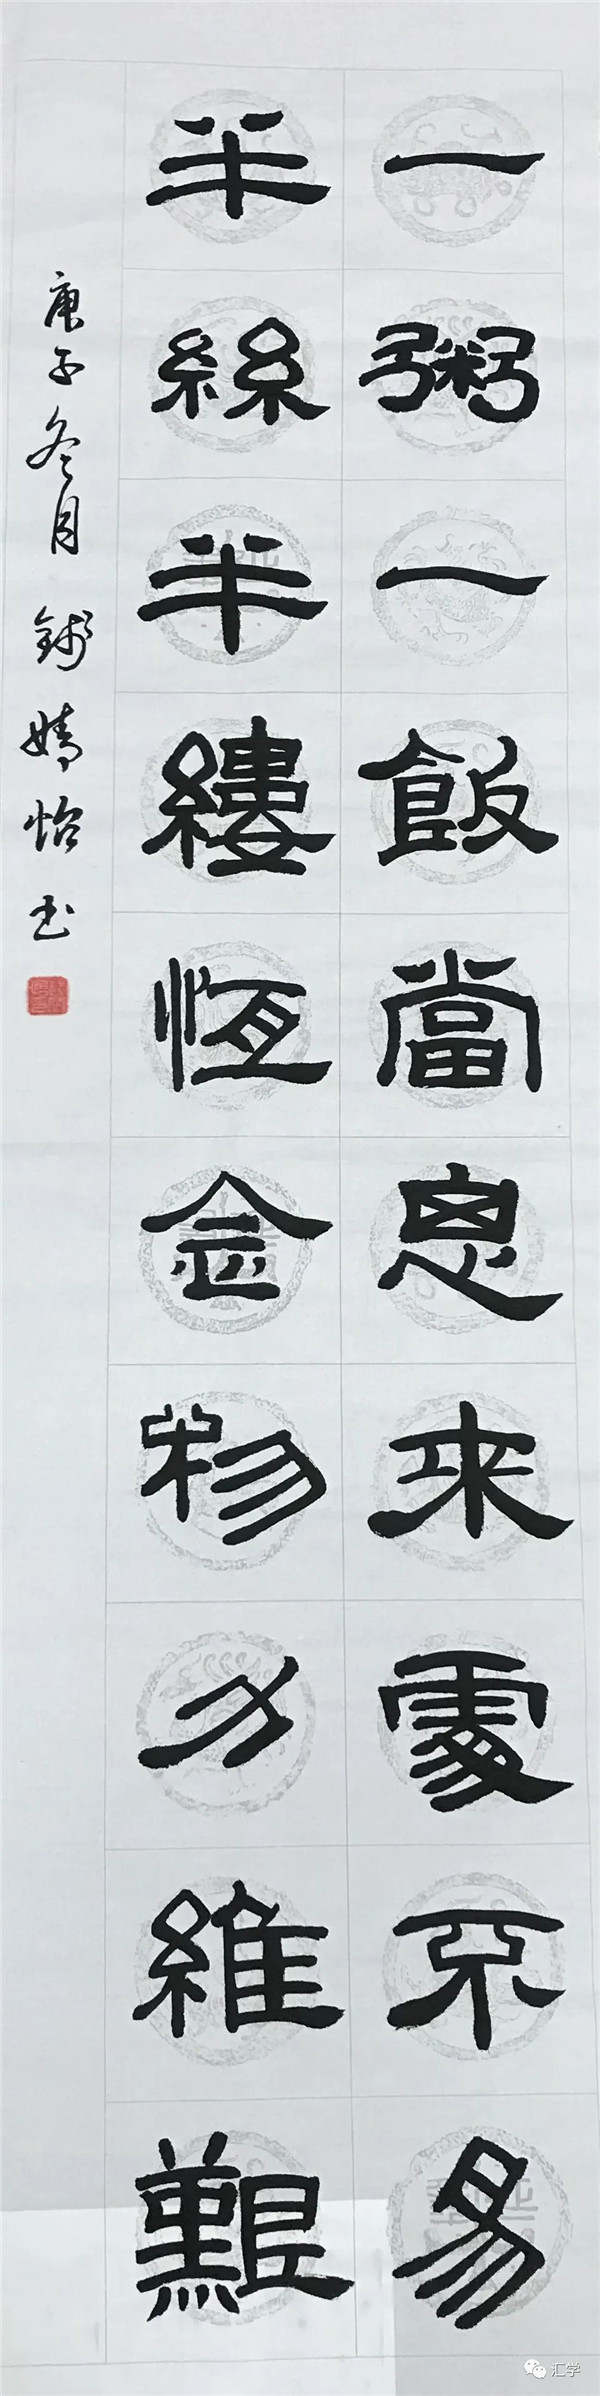 一粥一飯當思來處不易
半絲半縷恆念物力維艱
庚子冬月 錢婧怡书
汇学